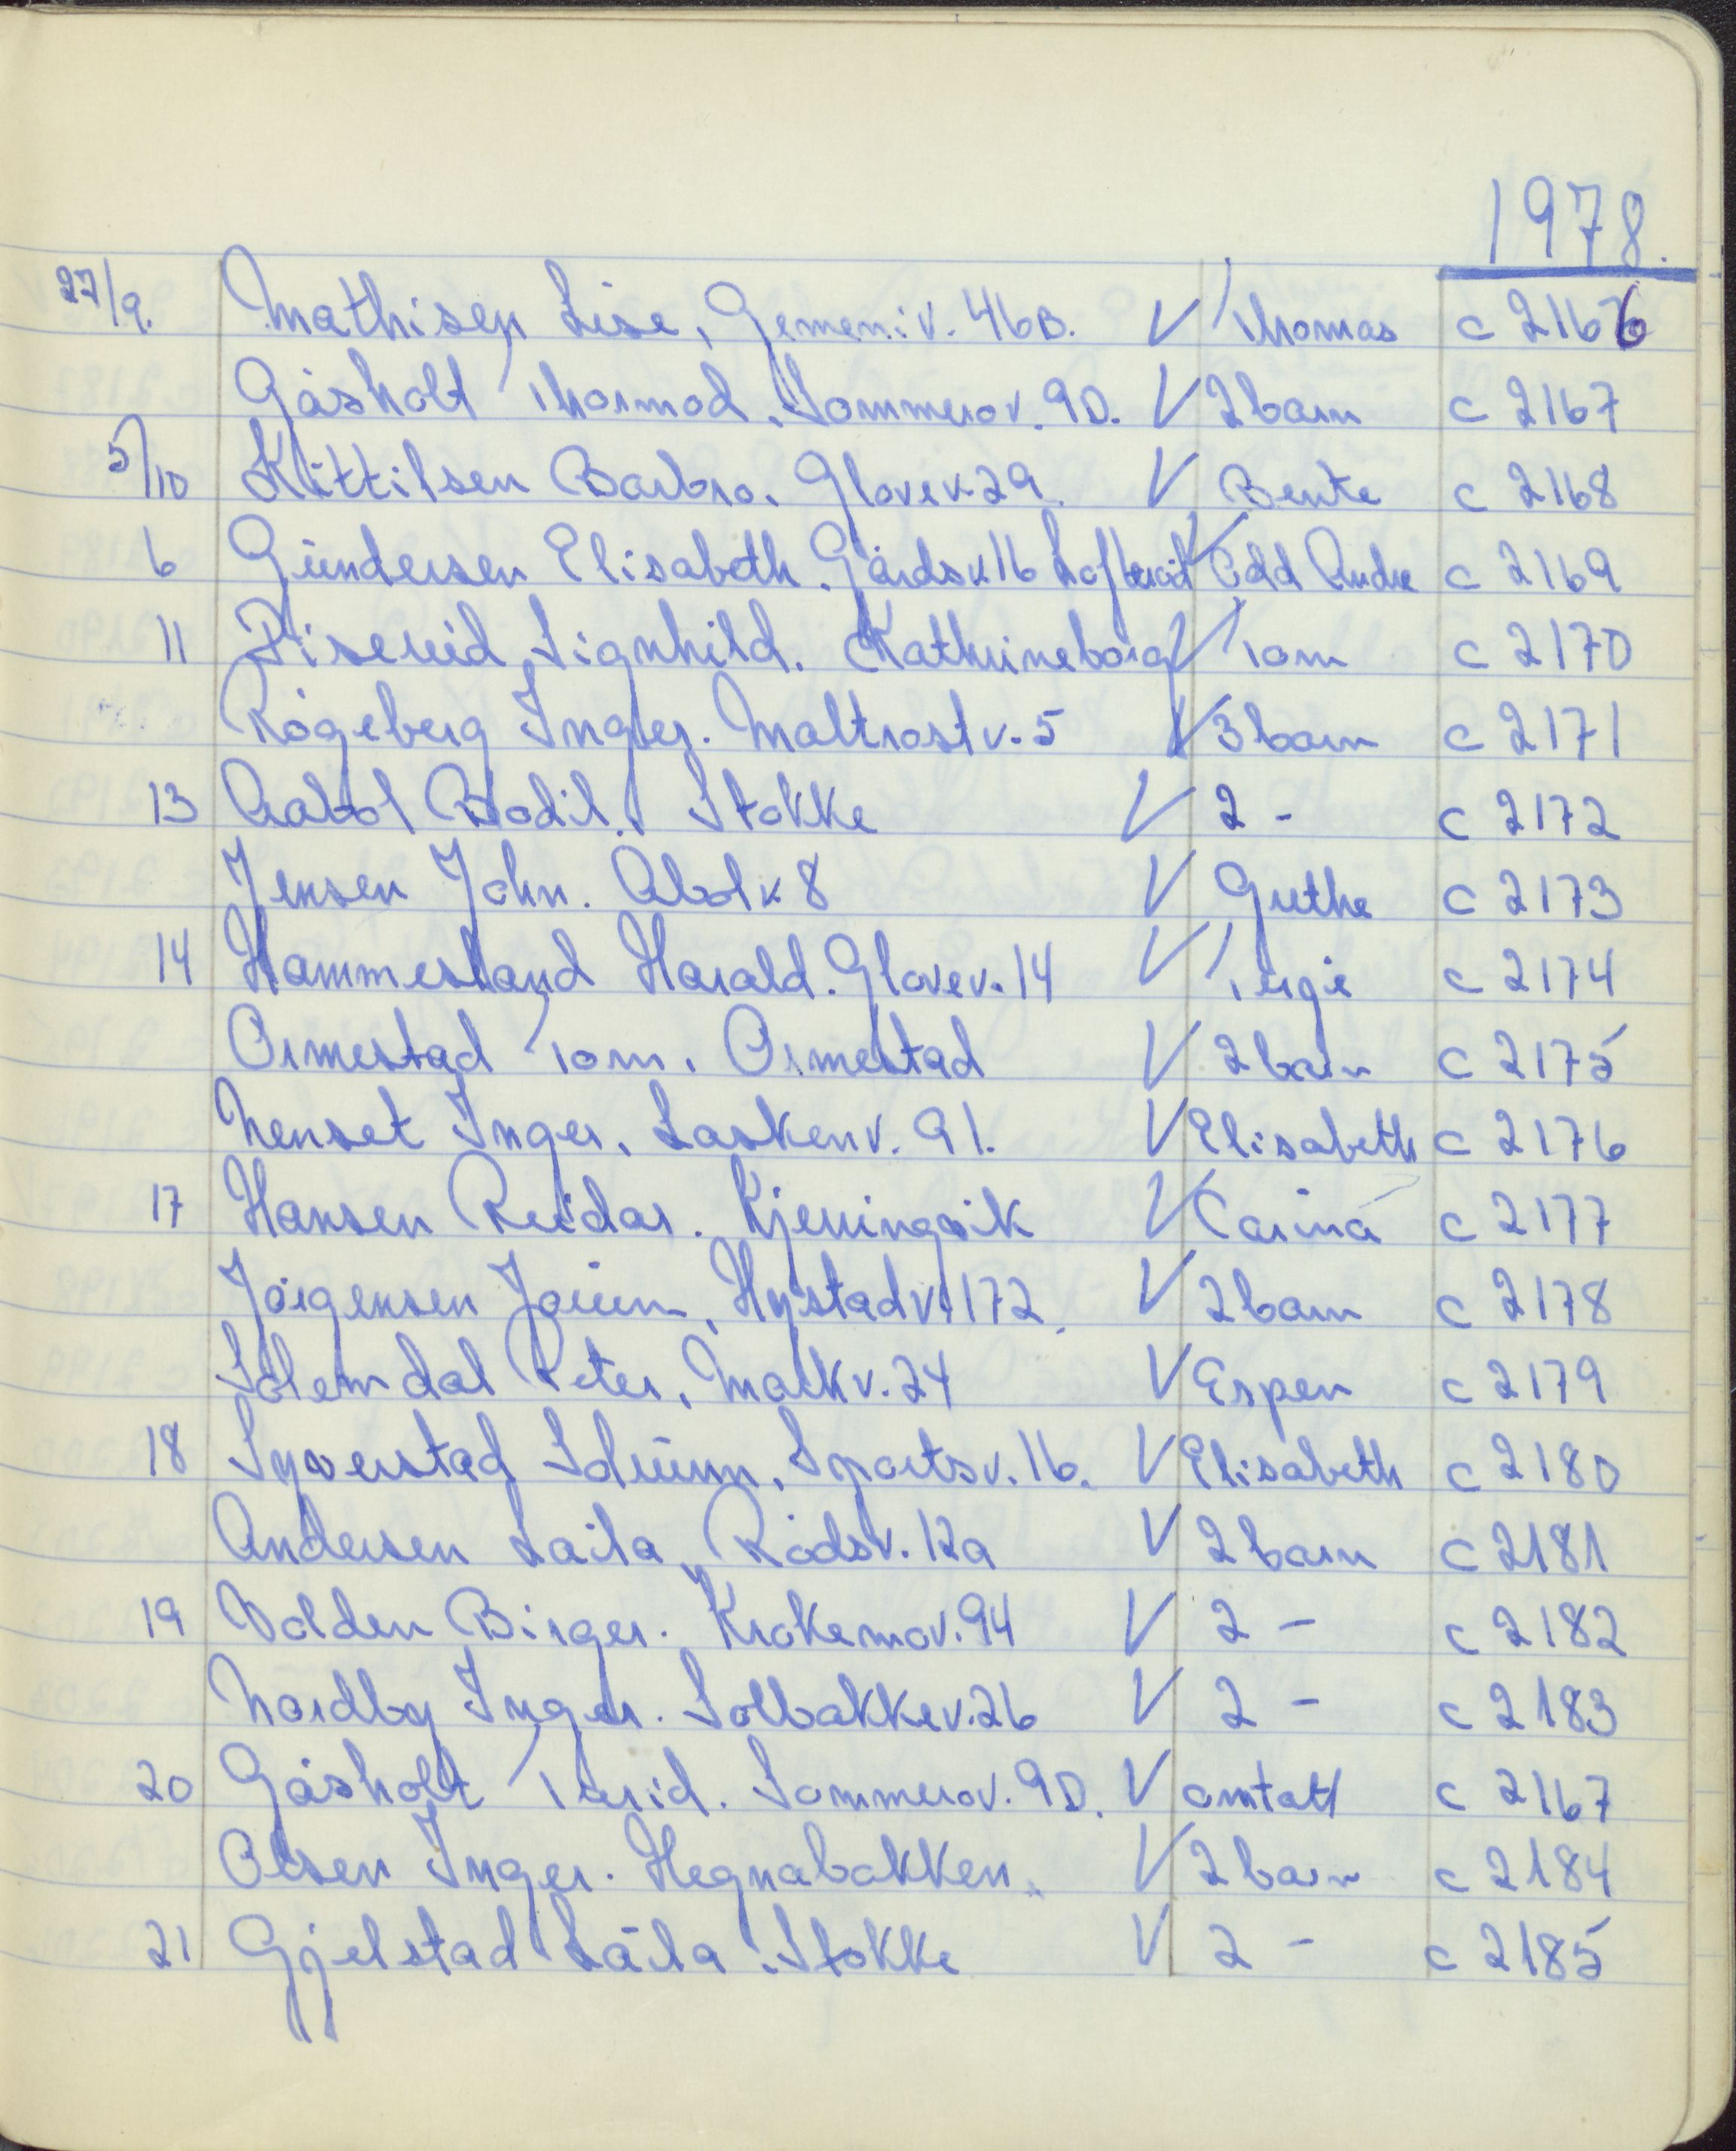 1978.
27/9. Mathisen Lise, Gemeniv. 46B. V Thomas c 2166
Gåsholt Thormod, Sommerov. 9D. V 2 barn c 2167
5/10 Kittilsen Barbro. Glovev 29. V Bente c 2168
6 Gundersen Elisabeth. Gårdsv 16 V Odd Andre c 2169
11 Signhild. Kathrineborg V Tom c 2170
Rögeberg Inger. Maltrostv. 5 V 3 barn c 2171
13 Aabol Bodil. Stokke V 2 - c 2172
Jensen John. Abolv 8 V Grethe c 2173
14 Hammesland Harald. Glovev. 14 V Terje c 2174
Ormestad Tom. Ormestad V 2 barn c 2175
Nenset Inger. Laskenv. 91. V Elisabeth c 2176
17 Hansen Reidar. Kjerringvik V Carina c 2177
Jörgensen Jorunn, Hystadv. 172. V 2 barn c 2178
Solemdal Peter, Markv. 24 V Espen c 2179
18 Syverstad Idunn, Sportsv. 16. V Elisabeth c 2180
Andersen Laila, Rödsv. 12a V 2 barn c 2181
19 Volden Birger. Krokemov. 94 V 2 - c 2182
Nordby Inger. Solbakkev. 26 V 2 - c 2183
20 Gåsholt Turid. Sommerov. 9D. V omtatt c 2167
Olsen Inger. Hegnabakken. V 2 barn c 2184
21 Gjelstad Laila. Stokke V 2 - c 2185